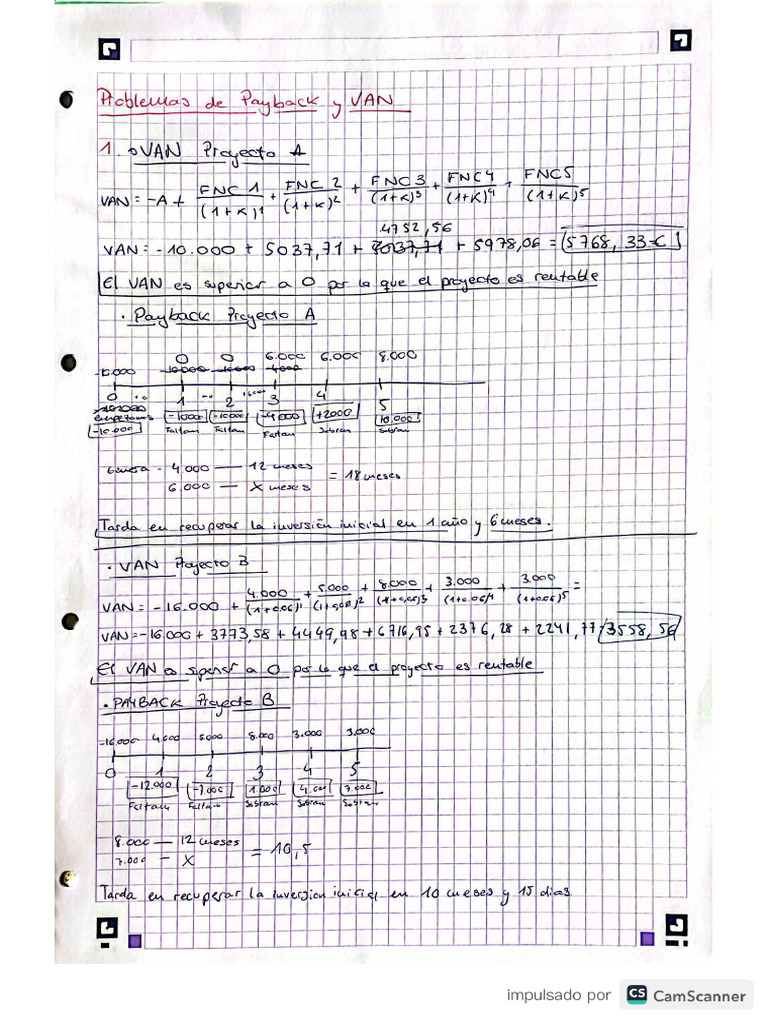 Problemas de Payback y VAN
1. • VAN Proyecto A
VAN = -A + FNC 1/(1+K)¹ + FNC 2/(1+K)² + FNC 3/(1+K)³ + FNC4/(1+K)⁴ + FNC5/(1+K)⁵
4752,56
VAN = -10.000 + 5037,71 + 5037,71 + 5978,06 = 5768,33€
El VAN es superior a 0 por lo que el proyecto es rentable
• Payback Proyecto A
0 0 6.000 6.000 8.000
-10.000 -10000 -10000 -4000
0 1 2 3 4 5
empezamos
-10.000 -1000 -1000 -4000 +2000 10.000
Faltan Faltan Faltan Sobran Sobran
Genera - 4.000 — 12 meses
6.000 — X meses = 18 meses
Tarda en recuperar la inversión inicial en 1 año y 6 meses.
• VAN Proyecto B
VAN = -16.000 + 4.000/(1+0.06)¹ + 5.000/(1+0,06)² + 8.000/(1+0,06)³ + 3.000/(1+0.06)⁴ + 3.000/(1+0.06)⁵ =
VAN = -16.000 + 3773,58 + 4449,98 + 6716,95 + 2376,28 + 2241,77 = 3558,56
El VAN es superior a 0 por lo que el proyecto es rentable
• PAYBACK Proyecto B
-16.000 4.000 5000 8.000 3.000 3.000
0 1 2 3 4 5
-12.000 -7.000 1.000 4.000 7.000
Faltan Faltan Sobran Sobran Sobran
8.000 — 12 meses
7.000 — X = 10,5
Tarda en recuperar la inversion inicial en 10 meses y 15 dias.
impulsado por CS CamScanner